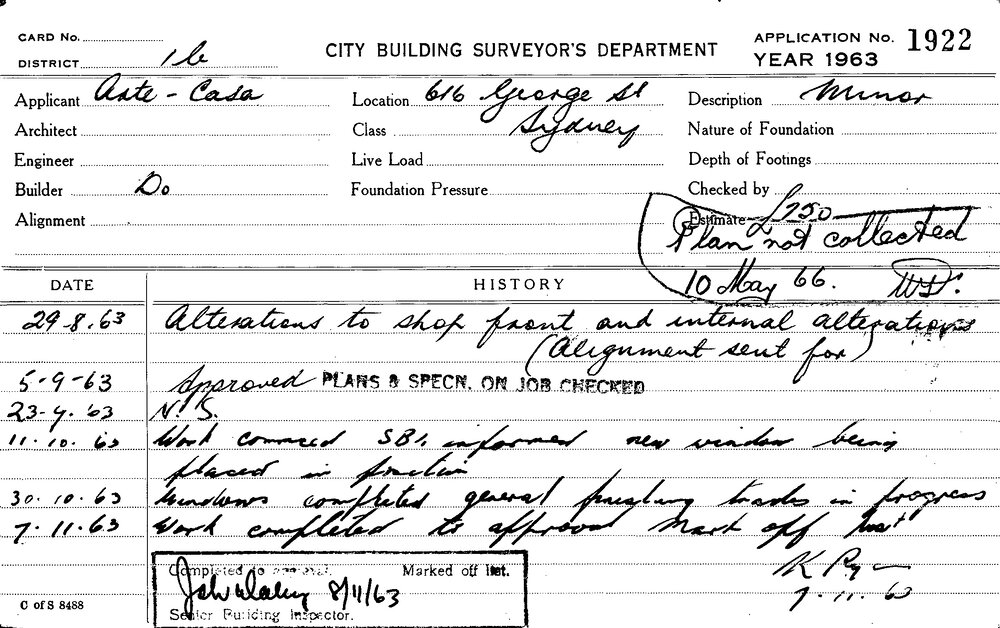 CARD No.
DISTRICT 1b
CITY BUILDING SURVEYOR'S DEPARTMENT
APPLICATION No. 1922
YEAR 1963
Applicant Arte-Casa
Location 616 George St
Sydney
Description Minor
Architect
Class
Nature of Foundation
Engineer
Live Load
Depth of Footings
Builder Do
Foundation Pressure
Checked by
Alignment
Estimate £750
Plan not collected
10 May 66.
DATE HISTORY
29-8.63 Alterations to shop front and internal alterations
(Alignment sent for)
5-9-63 Approved PLANS & SPECN. ON JOB CHECKED
23-9.63 N.S.
11.10.63 Work commced SBI. informed new window being
placed in position
30.10.63 Windows completed general finishing trades in progress
7.11.63 Work completed to approval Mark off list
K
7.11.63
Completed to approval. Marked off list.
8/11/63
Senior Building Inspector.
C of S 8488